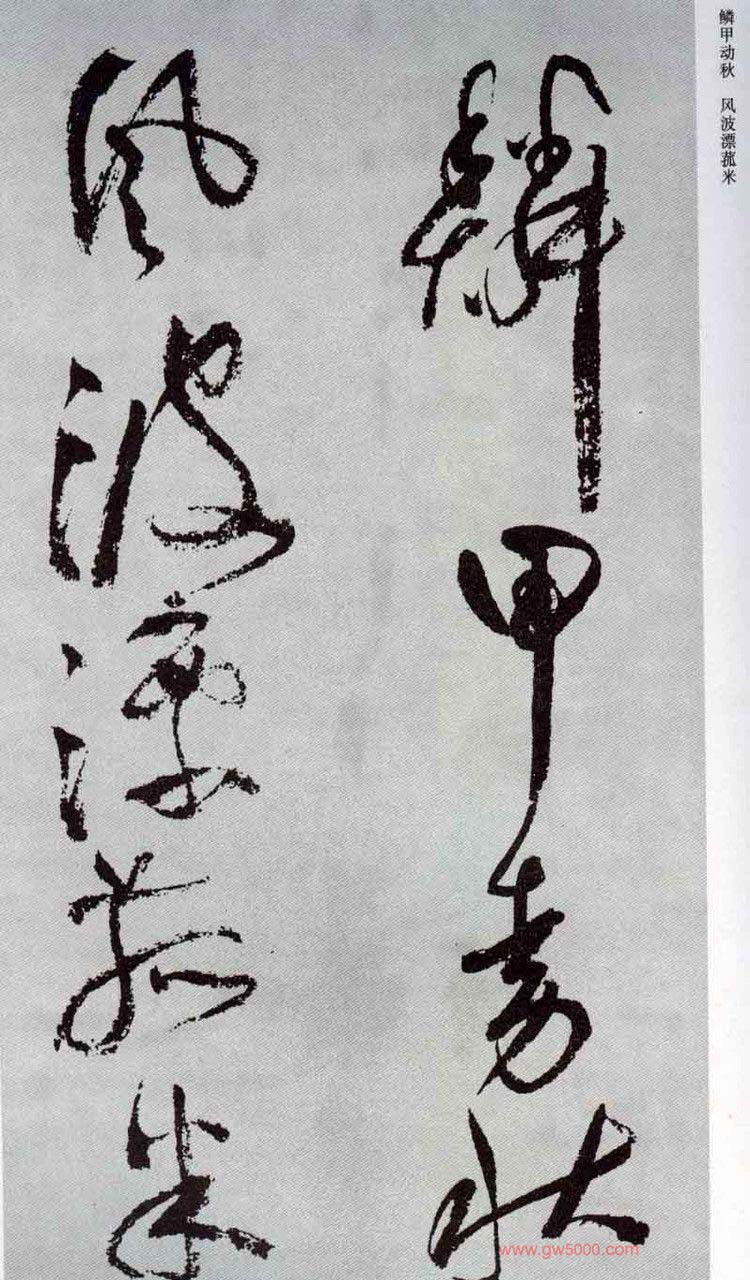 鳞甲动秋　风波漂菰米
鱗甲動秋
風波漂菰米
www.gw5000.com